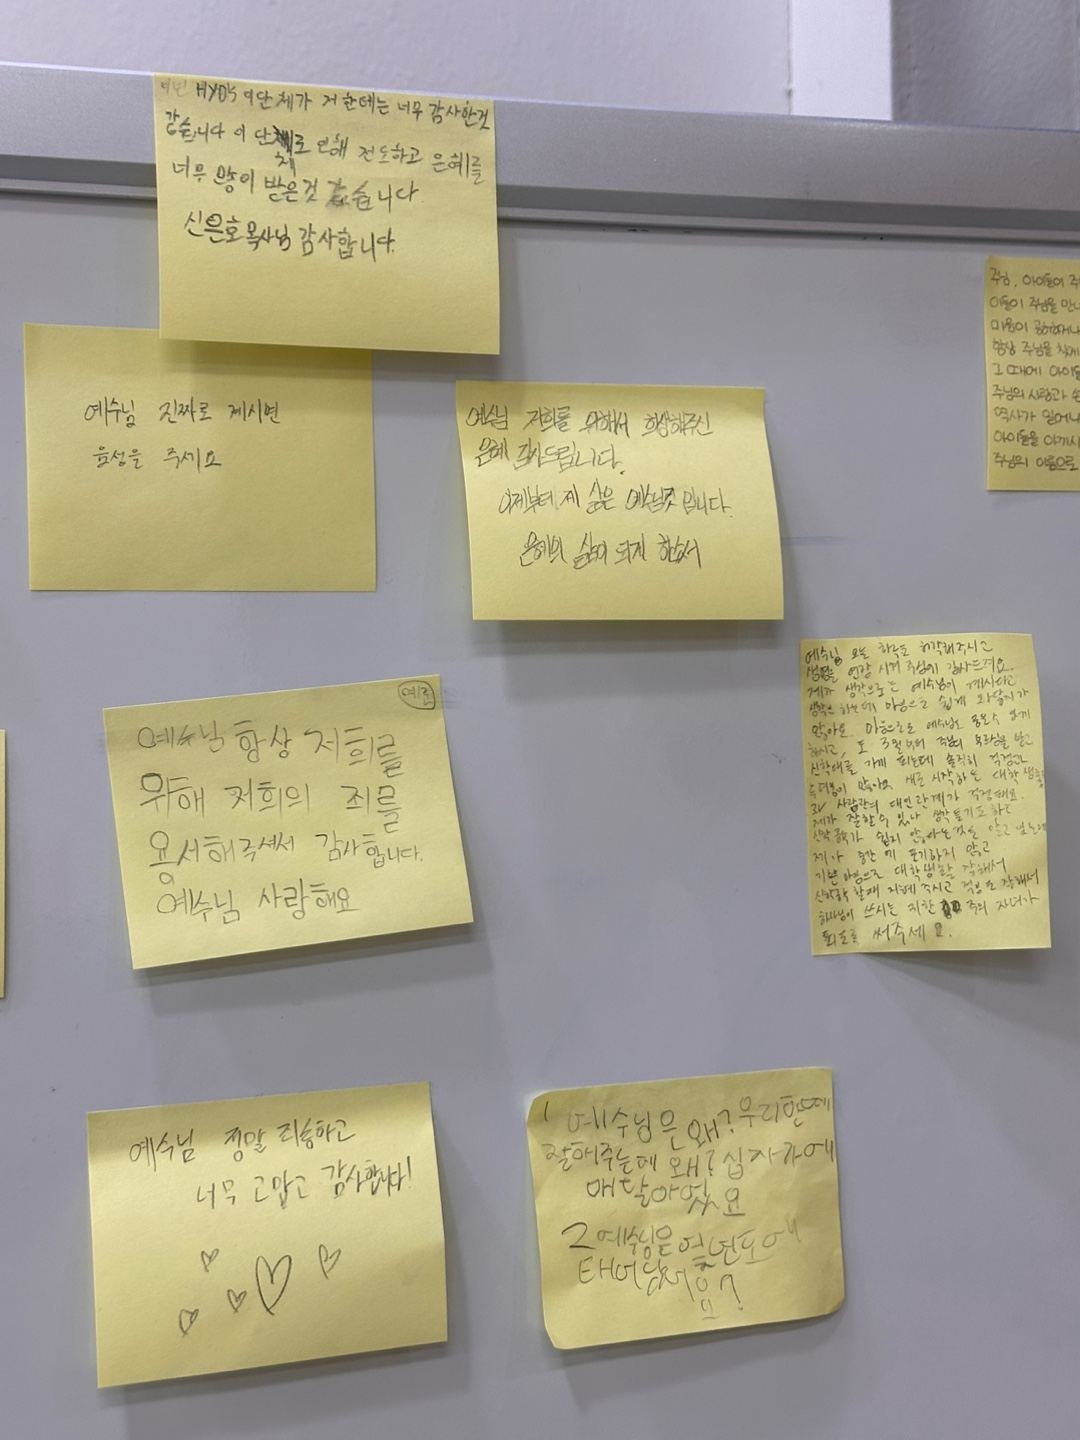 이번 HYDS 이단체가 저 한테는 너무 감사한것
같습니다 이 단체로 인해 전도하고 은혜를
너무 많이 받은것 같습니다
신은호목사님 감사합니다.
예수님 진짜로 계시면
음성을 주세요
예수님 저희를 위해서 희생해주신
은혜 감사드립니다.
이제부터 제 삶은 예수님것 입니다.
은혜의 삶이 되게 하소서
주님, 아이들이
이들이 주님을 만나
마음이
항상 주님을 찾게
그 때에 아이들
주님의 사랑과
역사가 일어나
아이들을 아끼시
주님의 이름으로
예수님 항상 저희를
위해 저희의 죄를
용서해주셔서 감사합니다.
예수님 사랑해요
예수님 오늘 하루도 허락해주시고
생명을 연장 시켜 주심에 감사드려요.
제가 생각으로는 예수님이 계시다고
생각은 하는데 마음으로 쉽게 와닿지가
않아요. 마음으로도 예수님을 믿을수 있게
하시고, 또 3월부터 주님의 부르심을 받고
신학대를 가게 되는데 솔직히 걱정과
두려움이 많아요 새로 시작하는 대학생활
과 사람관의 대인관계가 걱정돼요.
제가 잘할수 있나 생각들기도 하고
신학 공부가 쉽지 않다는것을 알고 있는데
제가 중간에 포기하지 않고
기쁜 마음으로 대학생활 잘해서
신학공부 할때 지혜 주시고 적응도 잘해서
하나님이 쓰시는 귀한 주의 자녀가
되도록 써주세요.
예수님 정말 죄송하고
너무 고맙고 감사합니다!
1 예수님은 왜? 우리한테
잘해주는데 왜? 십자가에
매달아있요
2 예수님은 몇년도에
태어났어요?